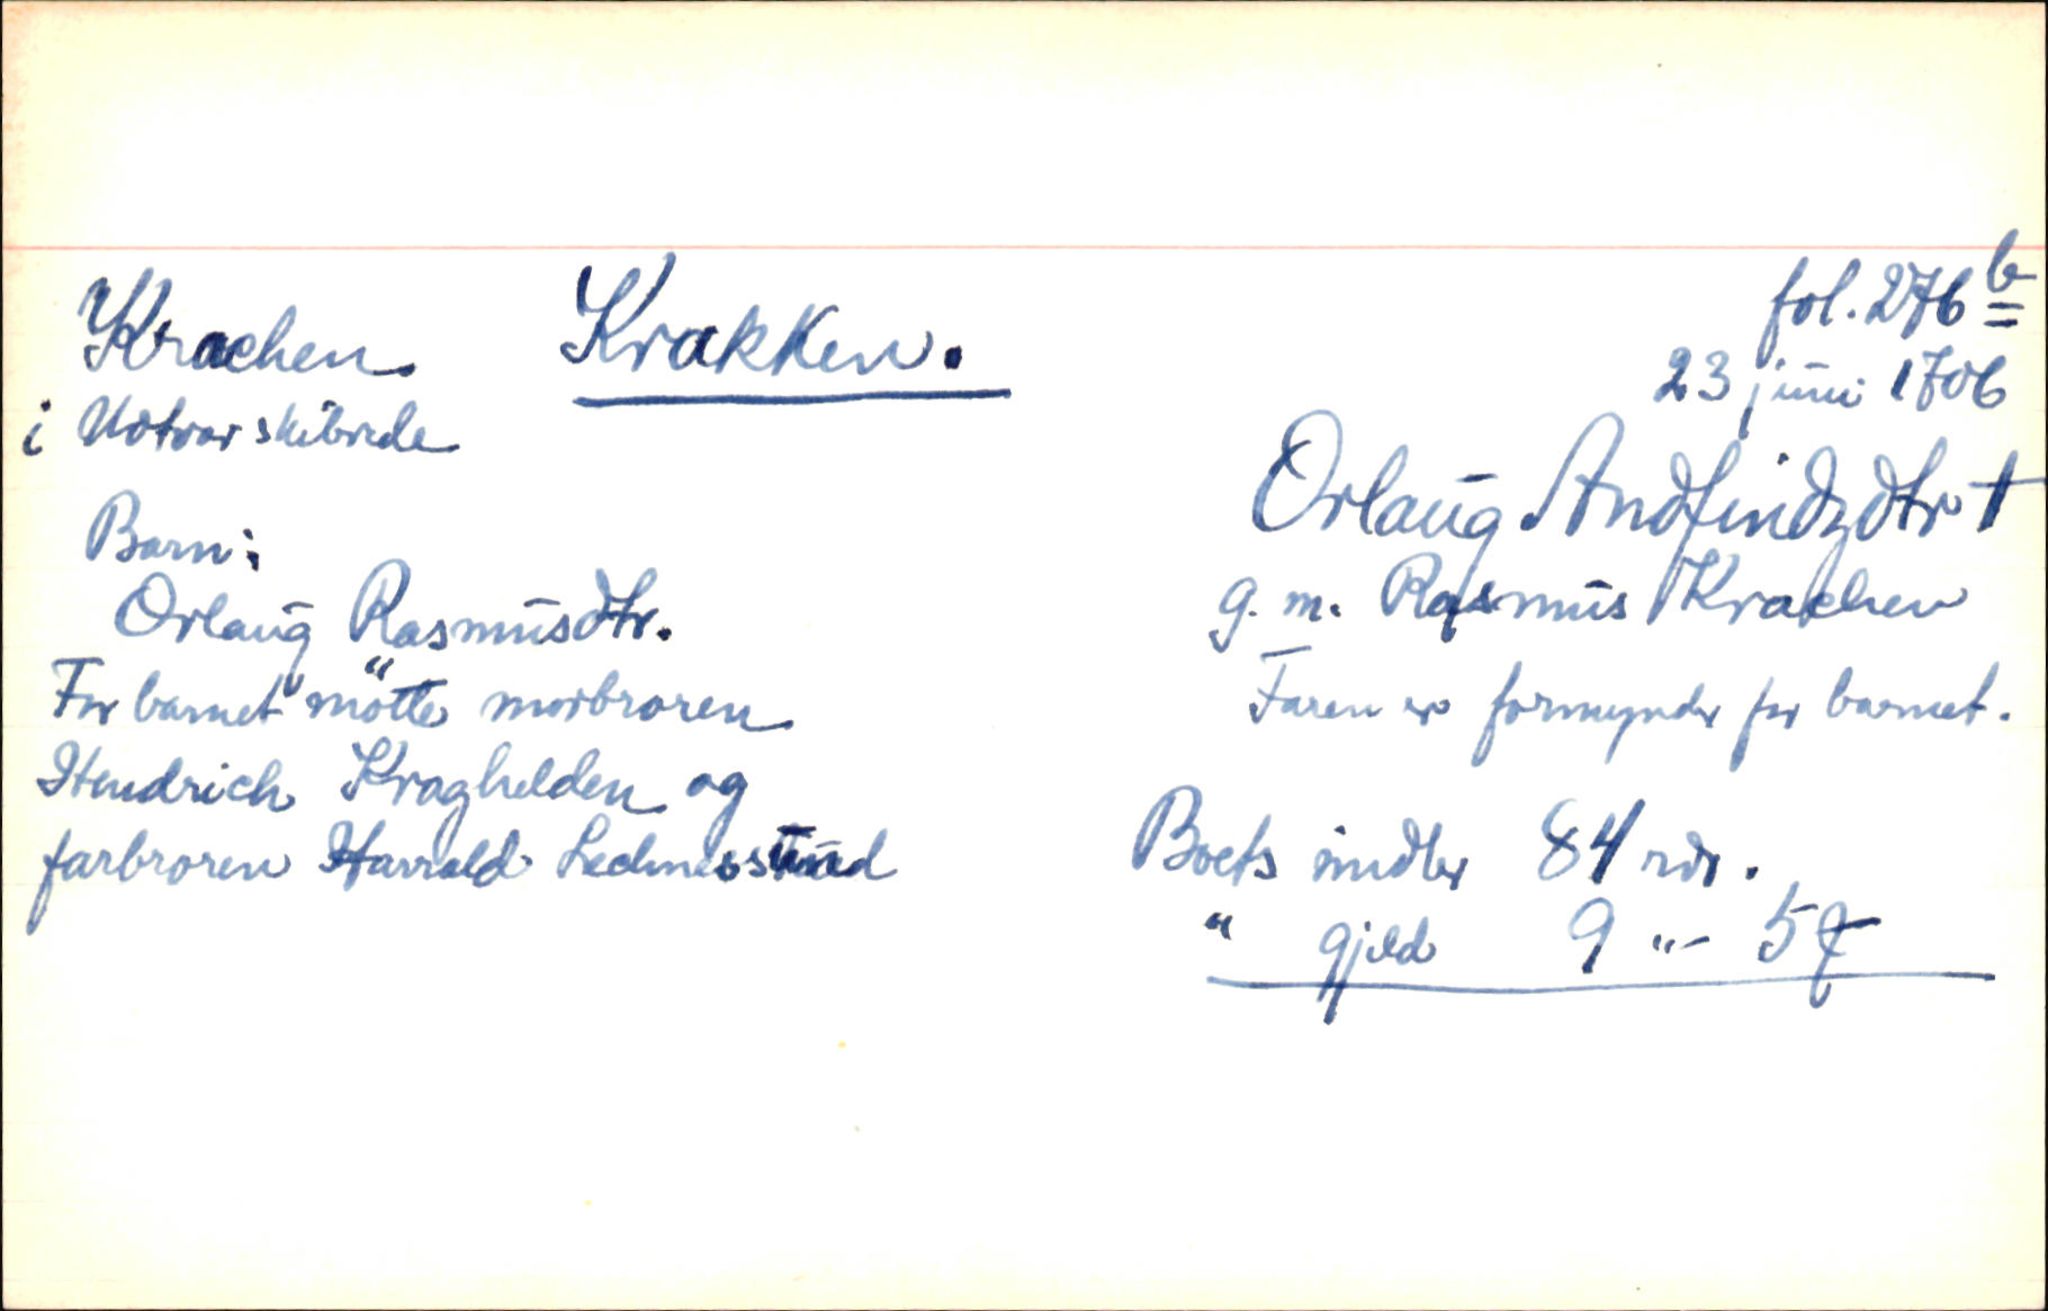 Krachen Krakken.
i Utvær skibrede
fol. 276 b
23 juni 1706
Orlaug Andfindzdtr †
g. m. Rasmus Krachen
Faren er formynder for barnet.
Boets midler 84 rdr.
" gjeld 9 "- 5
Barn:
Orlaug Rasmusdtr.
For barnet mötte morbroren
Hendrich Kraghelden og
farbroren Harrald